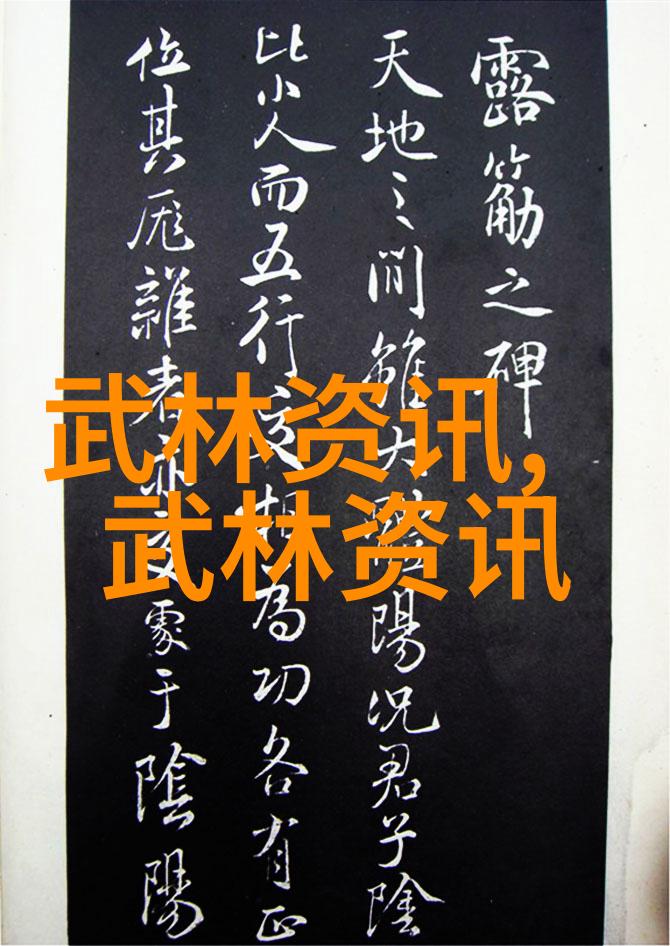 露筋之碑
天地之間雖大陽況君子陰
比小人而五行交相為功各有正
位其厖雜者亦交于陰陽
武林资讯,
武林资讯